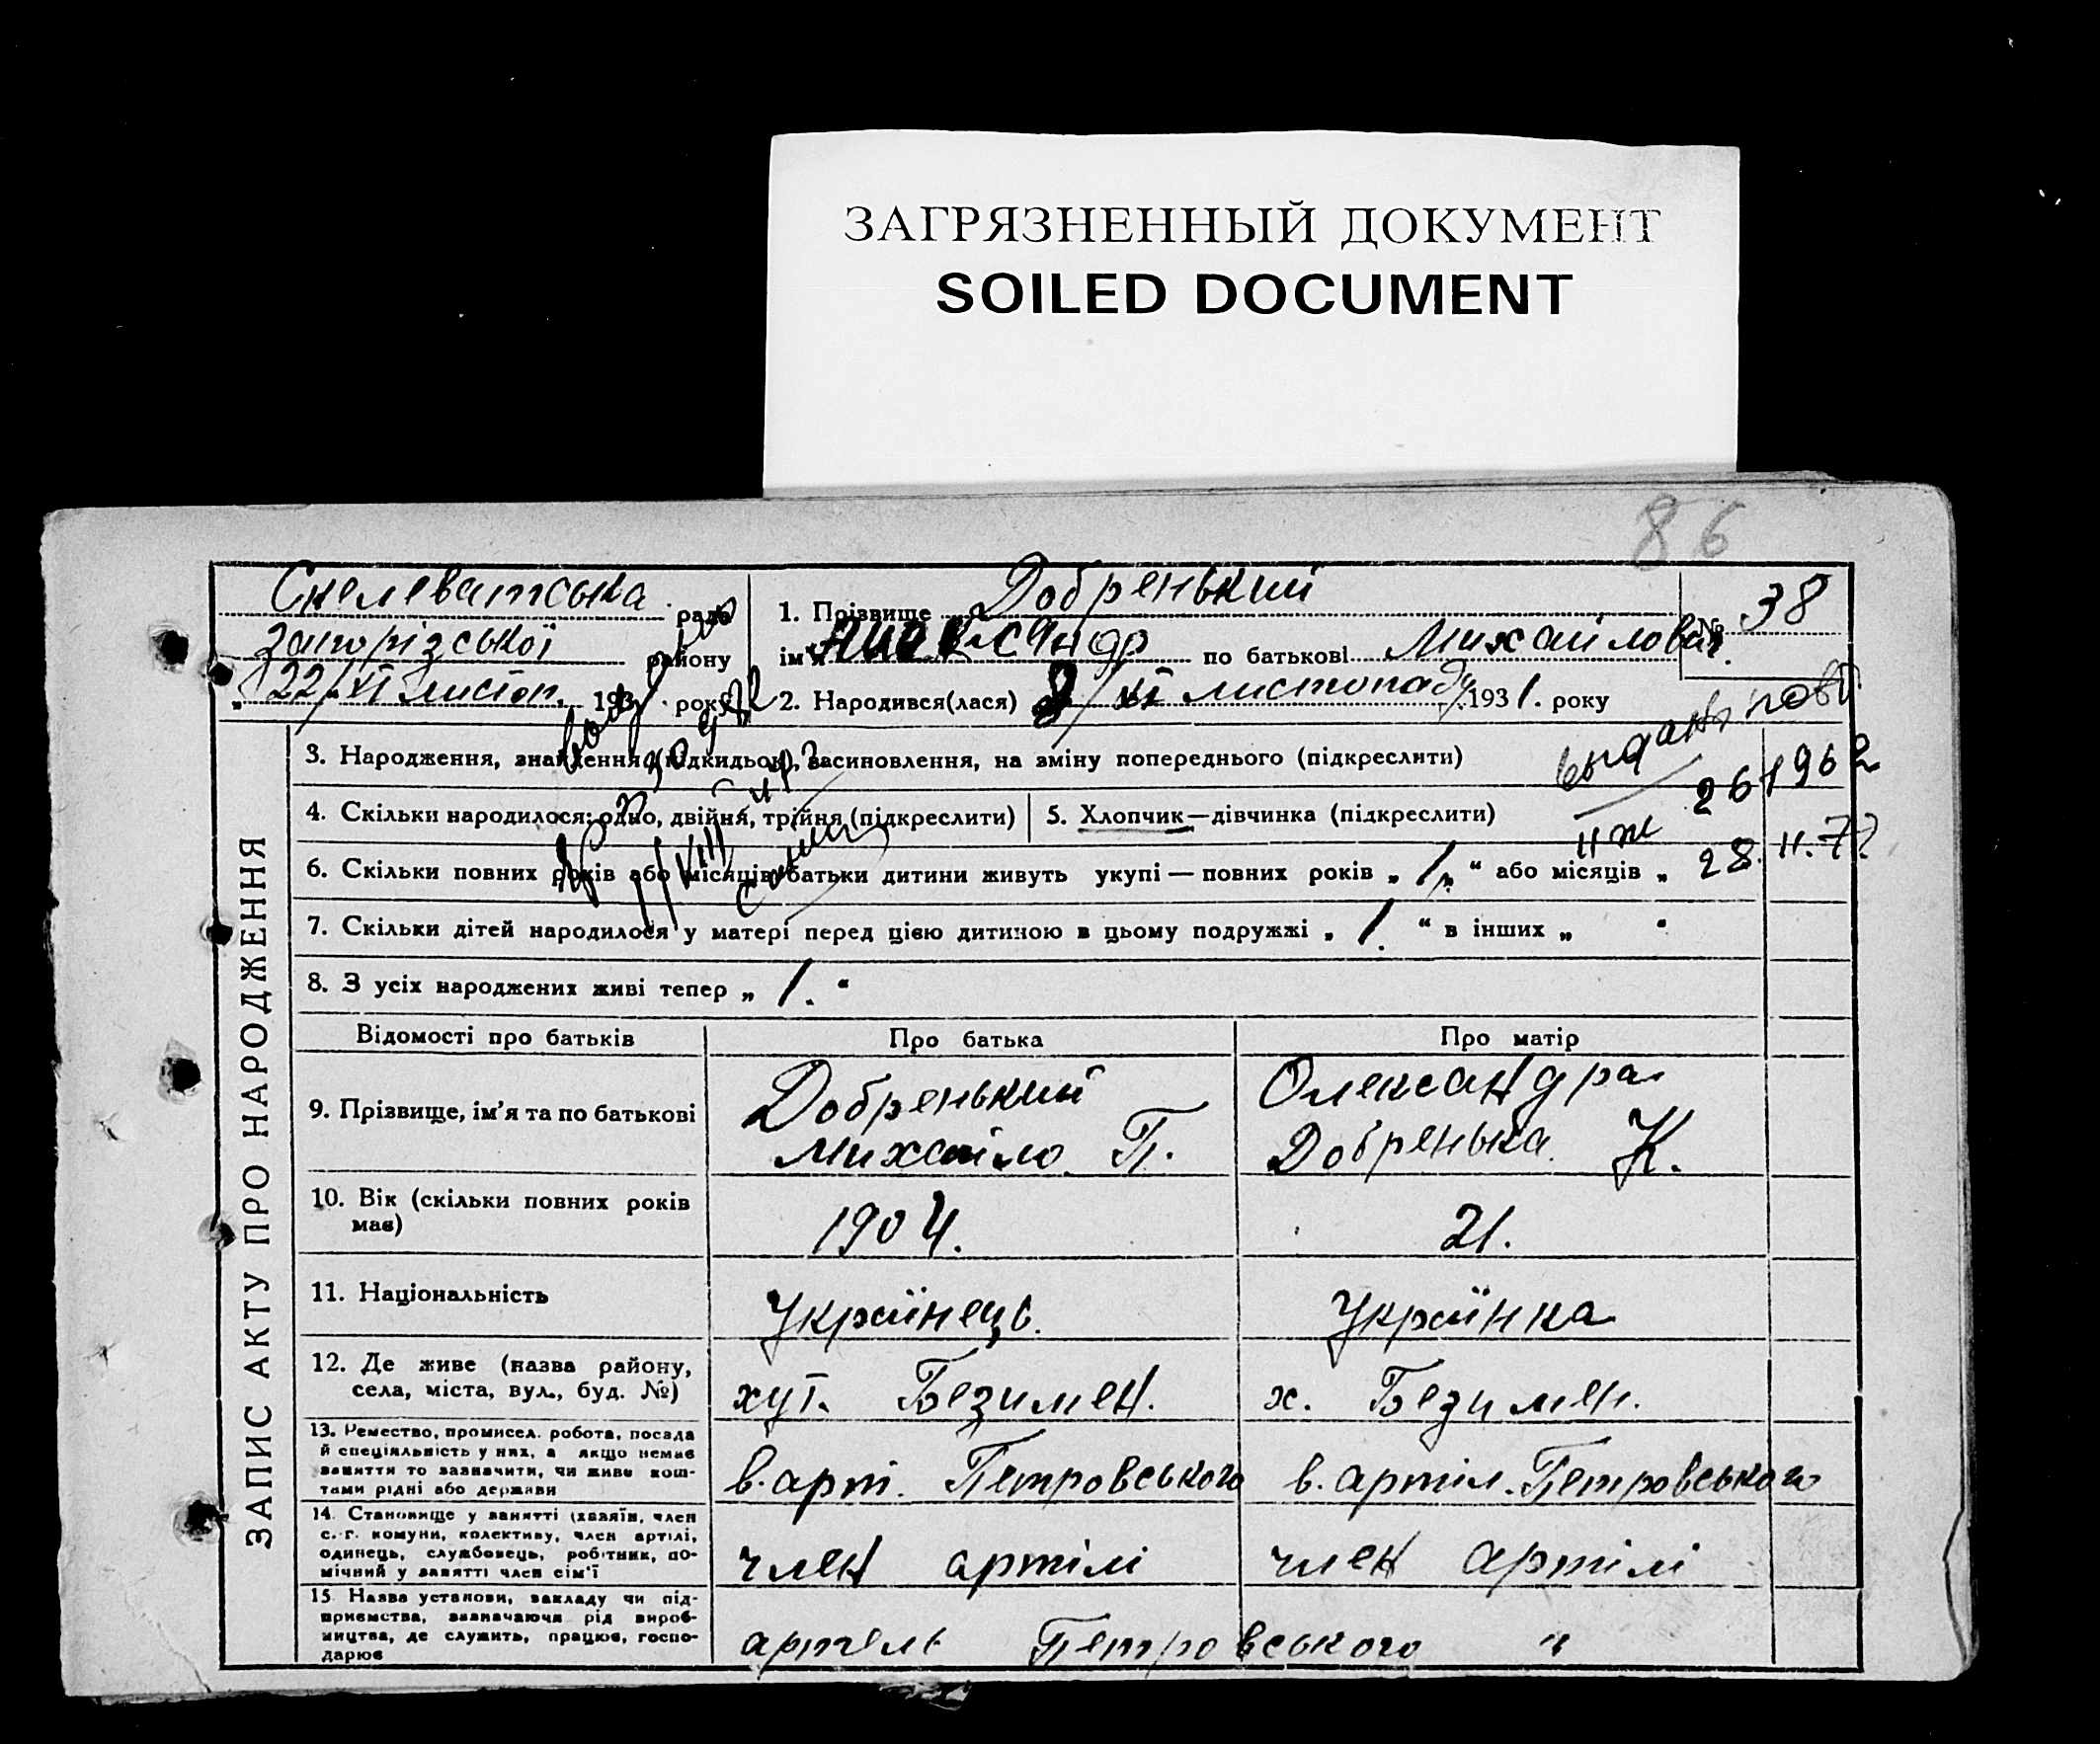 ЗАГРЯЗНЕННЫЙ ДОКУМЕНТ
SOILED DOCUMENT
86
Скелеватська рада
Запорізської району
„22/XI листоп. 1931. року
1. Прізвище Добренький
ім'я Александр по батькові Михайлович.
№ 38
2. Народився(лася) 8/XI листопаду 1931. року
3. Народження, знайдення (підкидьок), засиновлення, на зміну попереднього (підкреслити)
выдано повт.
4. Скільки народилося: одно, двійня, трійня (підкреслити)
5. Хлопчик—дівчинка (підкреслити)
6. Скільки повних років або місяців батьки дитини живуть укупі — повних років „ 1 “ або місяців „
28.11.72
7. Скільки дітей народилося у матері перед цією дитиною в цьому подружжі „ 1. “ в інших „ “
8. З усіх народжених живі тепер „ 1. “
ЗАПИС АКТУ ПРО НАРОДЖЕННЯ
Відомості про батьків Про батька Про матір
9. Прізвище, ім'я та по батькові
Добренький
Михайло П.
Олександра
Добренька К.
10. Вік (скільки повних років
має)
1904. 21.
11. Національність Українець. Українка
12. Де живе (назва району,
села, міста, вул., буд. №)
хут. Безимен. х. Безимен.
13. Ремество, промисел. робота, посада
й спеціяльність у них, а якщо немає
заняття то зазначити, чи живе кош-
тами рідні або держави
в. арт. Петровського в. артіл. Петровського
14. Становище у занятті (хазяїн, член
с.-г. комуни, колективу, член артілі,
одинець, службовець, робітник, по-
мічний у занятті член сім'ї
член артілі член артілі
15 Назва установи, закладу чи під-
приємства, зазначаючи рід вироб-
ництва, де служить, працює, госпо-
дарює
артель Петровського "